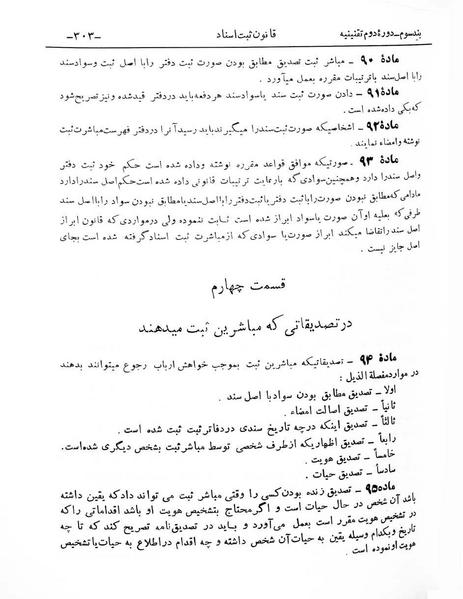 بند سوم ـ دورهٔ دوم تقنینیه
قانون ثبت اسناد
-۳۰۳-
مادهٔ ۹۰ ـ مباشر ثبت تصدیق مطابق بودن صورت ثبت دفتر را با اصل ثبت و سواد سند
را با اصل سند با ترتیبات مقرره بعمل میآورد .
مادهٔ ۹۱ ـ دادن صورت ثبت سند یا سواد سند هر دفعه باید در دفتر قید شده و نیز تصریح شود
که بکی داده شده است .
مادهٔ ۹۲ ـ اشخاصیکه صورت ثبت سند را میگیرند باید رسید آنرا در دفتر فهرست مباشرت ثبت
نوشته و امضاء نمایند .
مادهٔ ۹۳ ـ صورتیکه موافق قواعد مقرره نوشته و داده شده است حکم خود ثبت دفتر
و اصل سند را دارد و همچنین سوادی که با رعایت ترتیبات قانونی داده شده است حکم اصل سند را دارد
مادامی که مطابق نبودن صورت را با ثبت دفتر یا ثبت دفتر را با اصل سند یا مطابق نبودن سواد را با اصل سند
طرفی که بعلیه او آن صورت یا سواد ابراز شده است ثابت ننموده ولی در مواردی که قانون ابراز
اصل سند را تقاضا میکند ابراز صورت یا سوادی که از مباشرت ثبت اسناد گرفته شده است بجای
اصل جایز نیست .
قسمت چهارم
در تصدیقاتی که مباشرین ثبت میدهند
مادهٔ ۹۴ ـ تصدیقاتیکه مباشرین ثبت بموجب خواهش ارباب رجوع میتوانند بدهند
در موارد مفصلة الذیل :
اولا ـ تصدیق مطابق بودن سواد با اصل سند .
ثانیاً ـ تصدیق اسالت امضاء .
ثالثاً ـ تصدیق اینکه در چه تاریخ سندی در دفاتر ثبت ثبت شده است .
رابعاً ـ تصدیق اظهاریکه از طرف شخصی توسط مباشر ثبت بشخص دیگری شده است.
خامساً ـ تصدیق هویت .
سادساً ـ تصدیق حیات .
مادهٔ ۹۵ ـ تصدیق زنده بودن کسی را وقتی مباشر ثبت می تواند داد که یقین داشته
باشد آن شخص در حال حیات است و اگر محتاج بتشخیص هویت او باشد اقداماتی را که
در تشخیص هویت مقرر است بعمل می‌آورد و باید در تصدیق‌نامه تصریح کند که تا چه
تاریخ و بکدام وسیله یقین به حیات آن شخص داشته و چه اقدام در اطلاع به حیات یا تشخیص
هویت او نموده است .